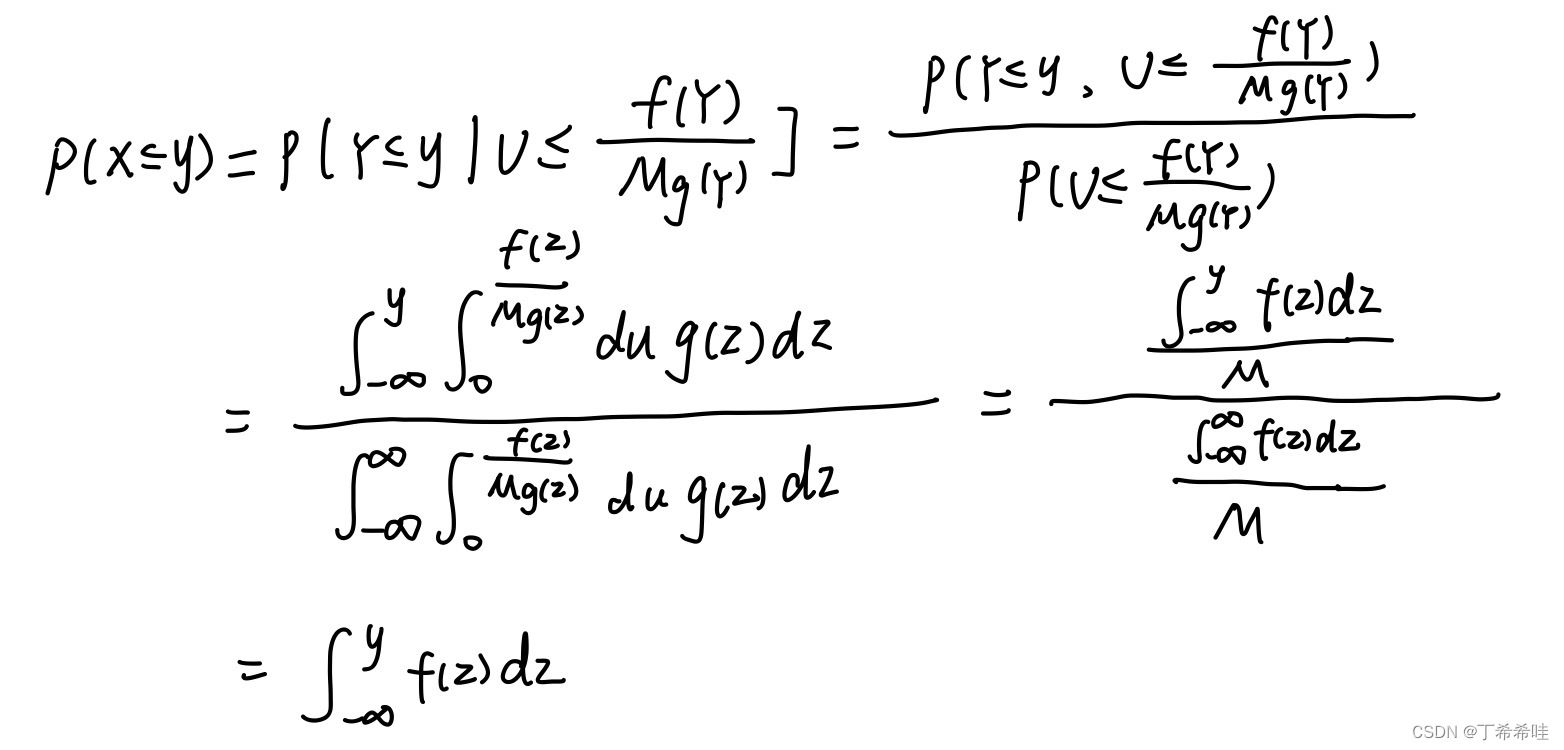 P(X≤y) = P[Y≤y | U≤ \frac{f(Y)}{Mg(Y)}] = \frac{P(Y≤y、U≤ \frac{f(Y)}{Mg(Y)})}{P(U≤ \frac{f(Y)}{Mg(Y)})}
= \frac{\int_{-∞}^{y} \int_{0}^{\frac{f(z)}{Mg(z)}} du g(z)dz}{\int_{-∞}^{∞} \int_{0}^{\frac{f(z)}{Mg(z)}} du g(z)dz} = \frac{\frac{\int_{-∞}^{y} f(z)dz}{M}}{\frac{\int_{-∞}^{∞} f(z)dz}{M}}
= \int_{-∞}^{y} f(z)dz
CSDN @丁希希哇